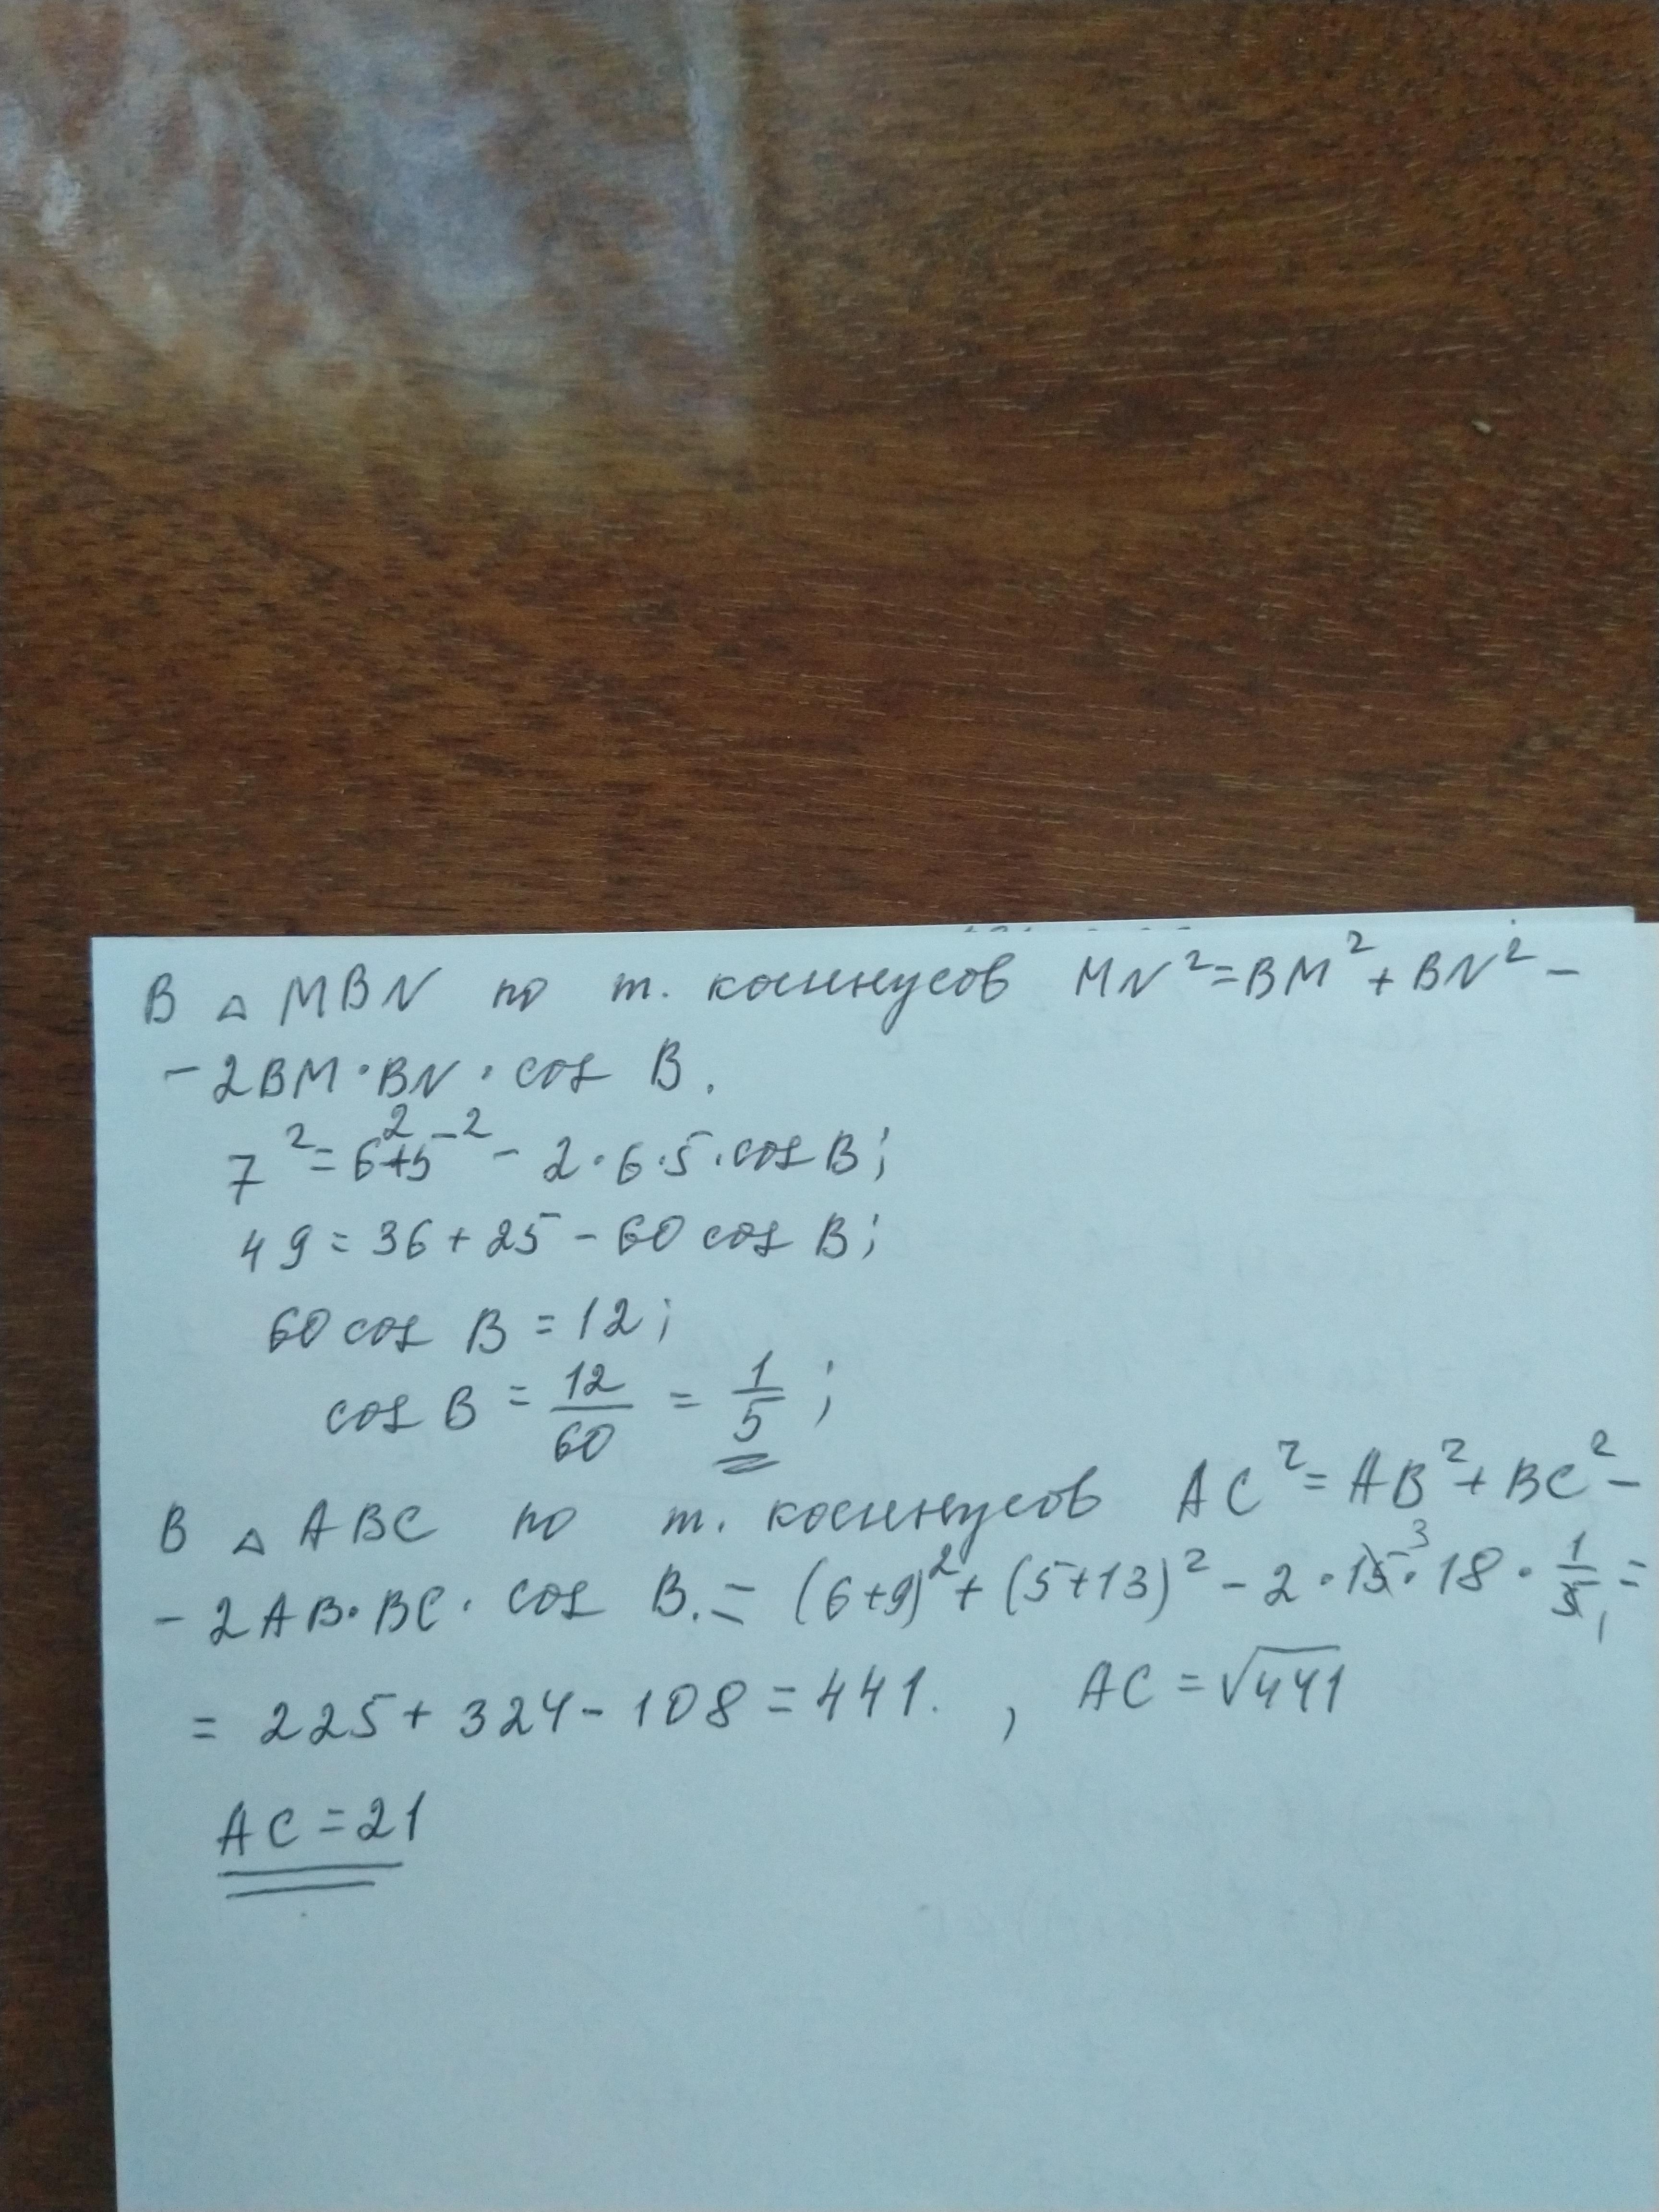 В △ MBN по т. косинусов MN² = BM² + BN² -
- 2BM · BN · cos B.
7² = 6² + 5² - 2 · 6 · 5 · cos B;
49 = 36 + 25 - 60 cos B;
60 cos B = 12;
cos B = 12/60 = 1/5;
В △ ABC по т. косинусов AC² = AB² + BC² -
- 2AB · BC · cos B. = (6+9)² + (5+13)² - 2 · 15³ · 18 · 1/5₁ =
= 225 + 324 - 108 = 441. , AC = √441
AC = 21